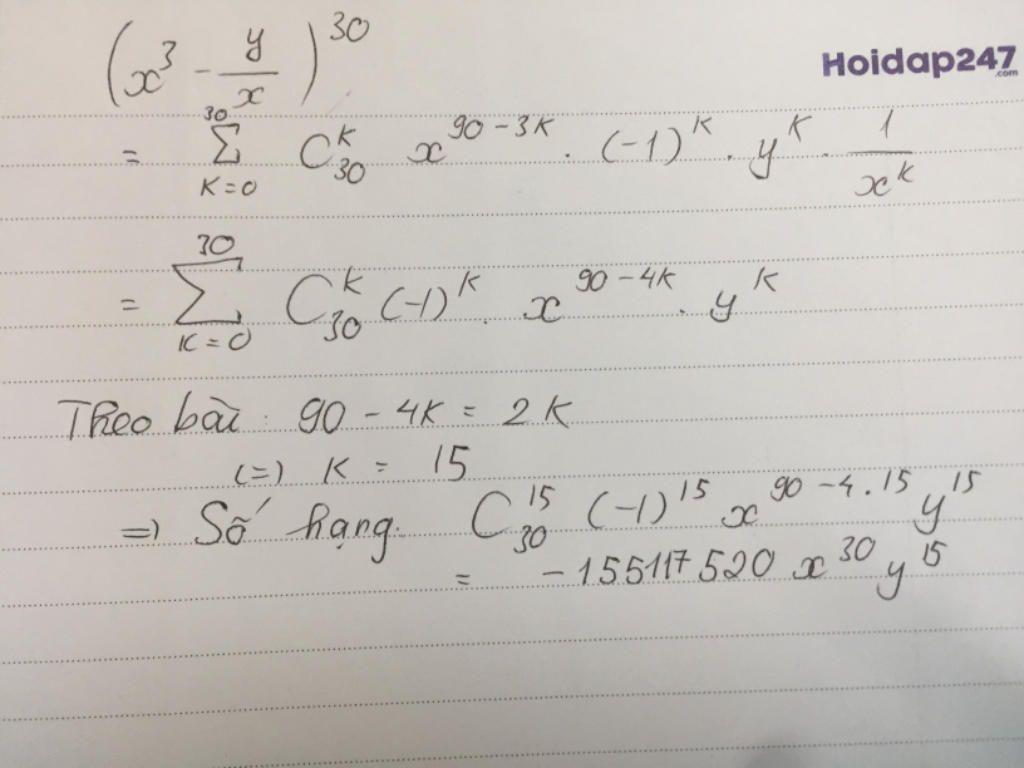 (x³ - y/x)³⁰
Hoidap247.com
= ∑_{K=0}^{30} C_{30}^{K} x^{90-3K} . (-1)^{K} . y^{K} . 1/x^{k}
= ∑_{K=0}^{30} C_{30}^{k} (-1)^{K} . x^{90-4K} . y^{K}
Theo bài: 90 - 4K = 2K
(=) K = 15
=> Số hạng: C_{30}^{15} (-1)^{15} x^{90-4.15} y^{15}
= -155117520 x^{30} y^{15}